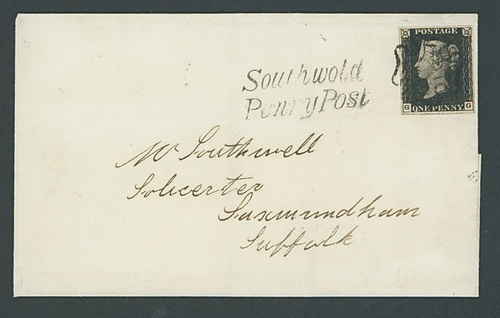 Southwold
Penny Post
POSTAGE
G ONE PENNY G
Mr Southwell
Solicerter
Saxmundham
Suffolk